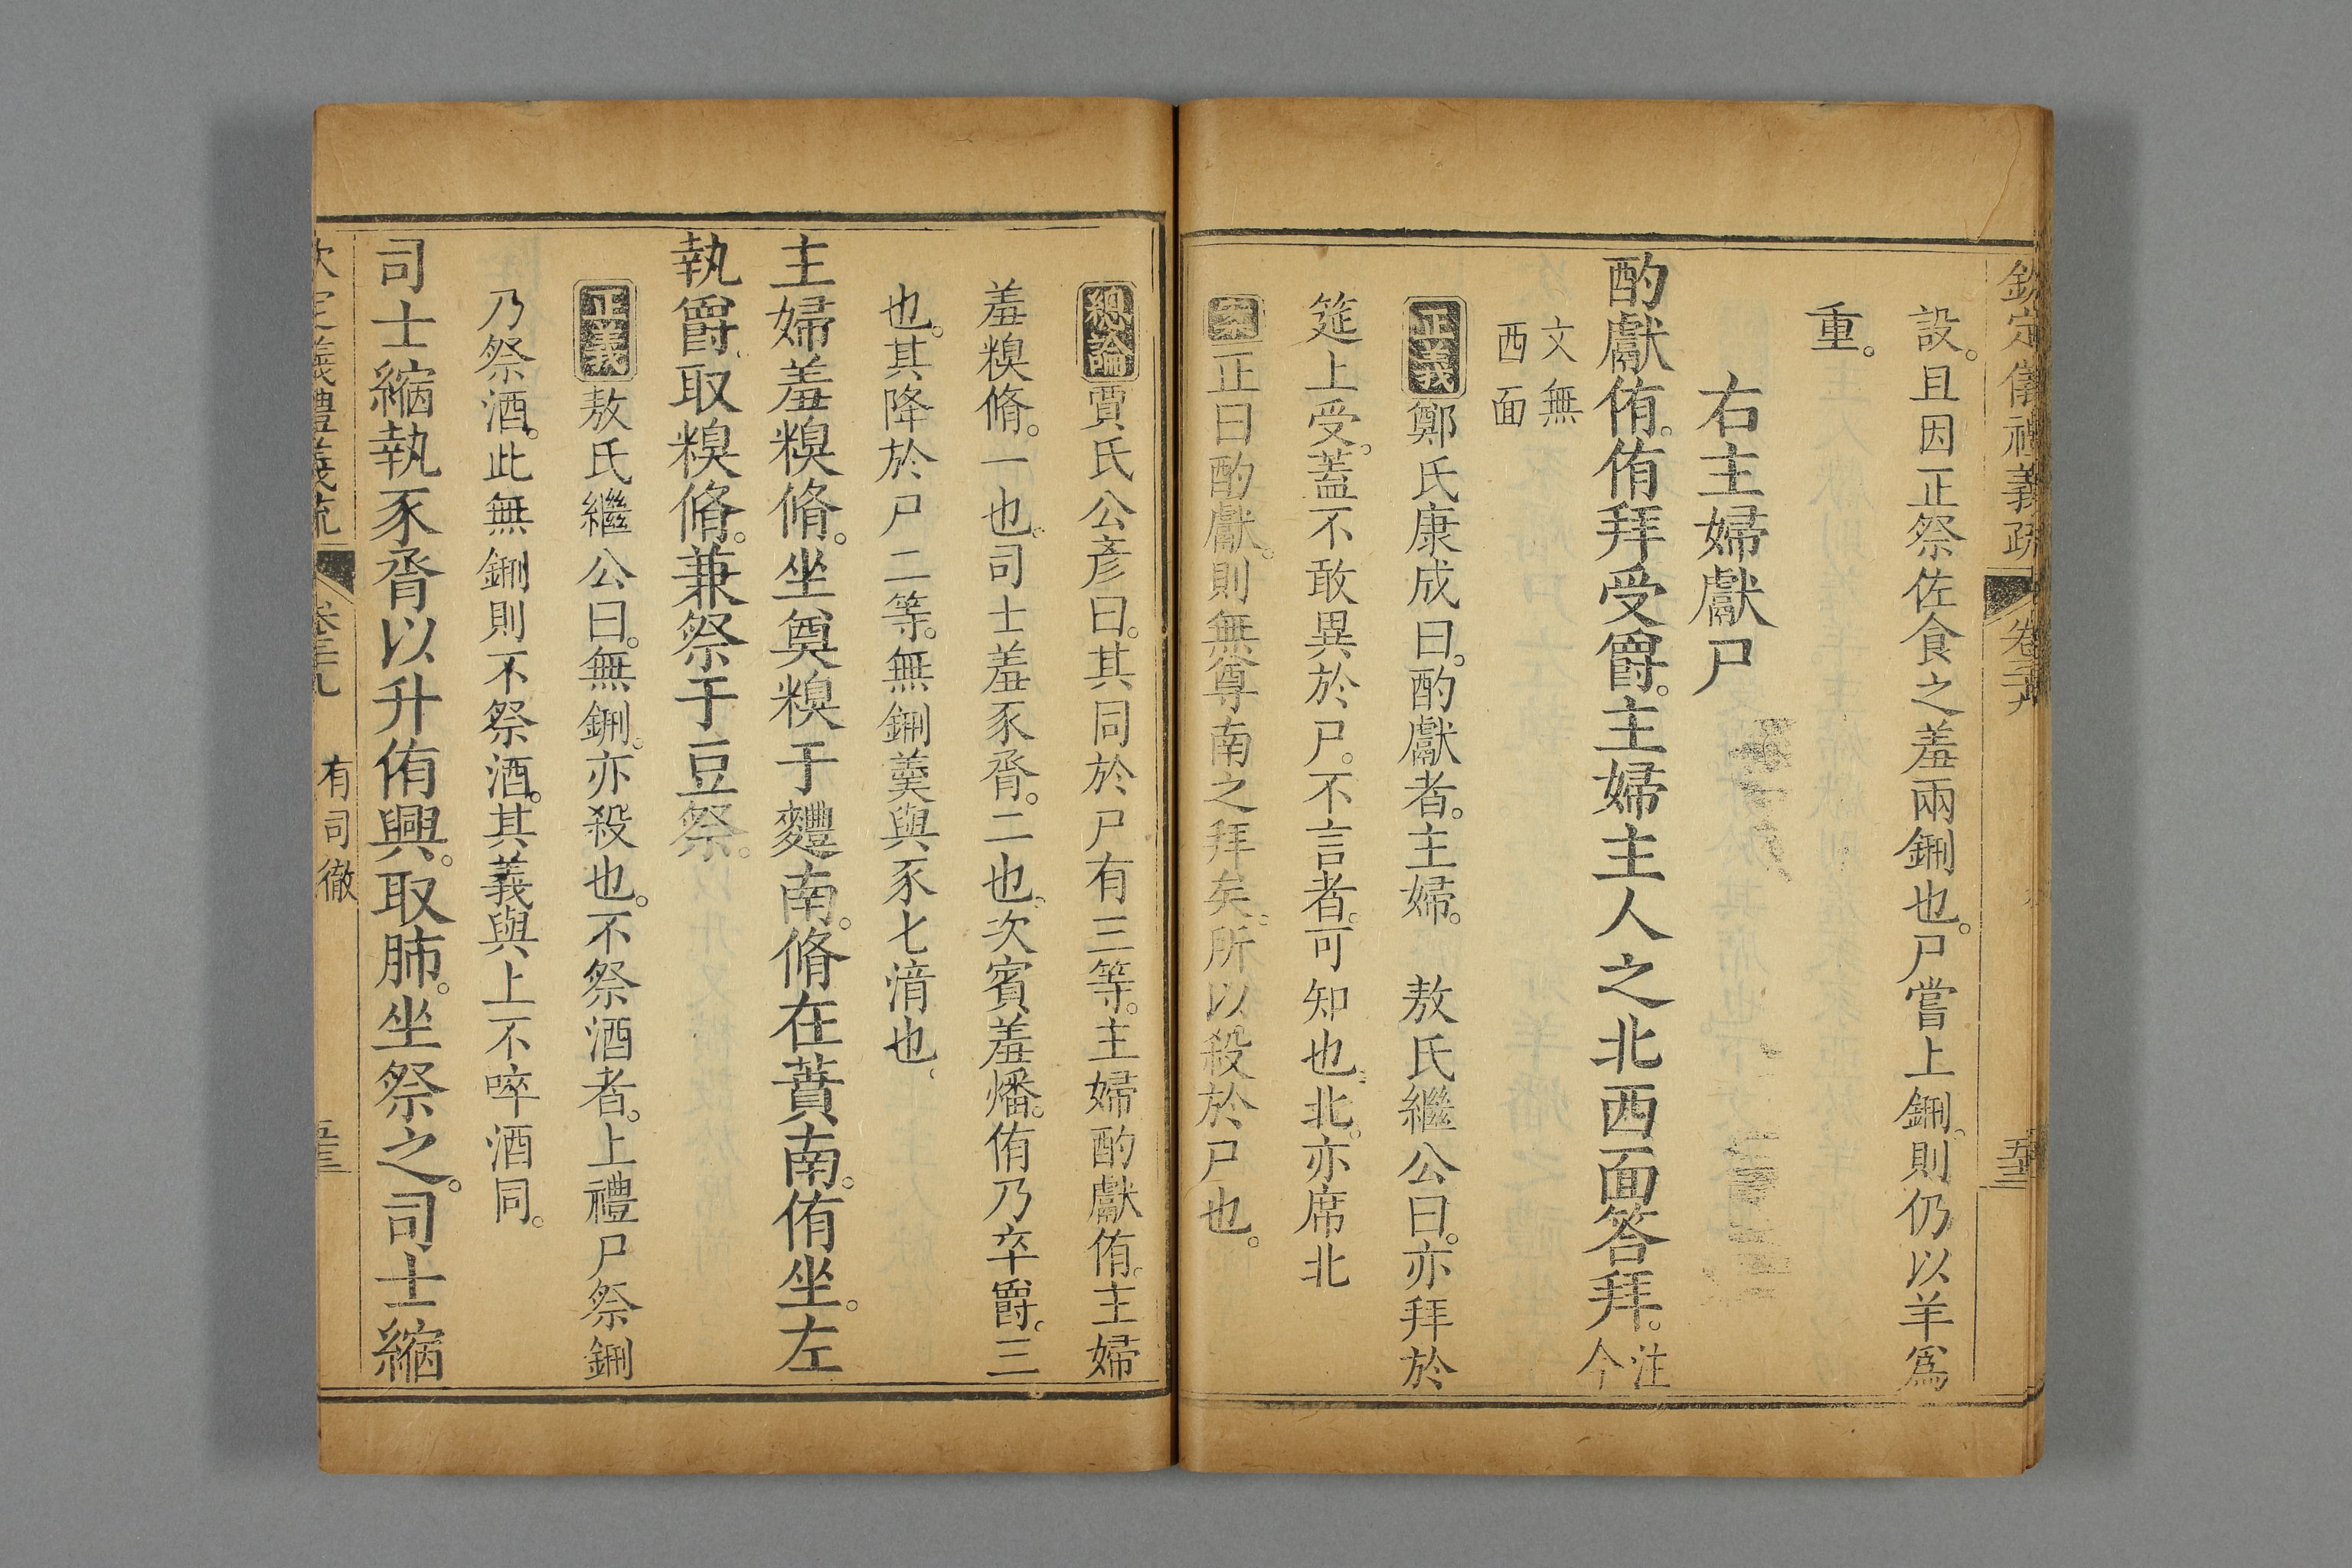 欽定儀禮義疏 卷三十九 五三
設。且因正祭佐食之羞兩鉶也。尸嘗上鉶。則仍以羊爲
重。
右主婦獻尸
酌獻侑。侑拜受爵。主婦主人之北西面答拜。注今
文無
西面
正義鄭氏康成曰。酌獻者。主婦。 敖氏繼公曰。亦拜於
筵上受。蓋不敢異於尸。不言者。可知也。北。亦席北
正曰酌獻。則無尊南之拜矣。所以殺於尸也。
總論賈氏公彥曰。其同於尸有三等。主婦酌獻侑。主婦
羞糗脩。一也。司士羞豕脀。二也。次賓羞燔。侑乃卒爵。三
也。其降於尸二等。無鉶羹與豕匕湆也。
主婦羞糗脩。坐奠糗于麷南。脩在蕡南。侑坐。左
執爵取糗脩。兼祭于豆祭。
正義敖氏繼公曰。無鉶。亦殺也。不祭酒者。上禮尸祭鉶
乃祭酒。此無鉶則不祭酒。其義與上不啐酒同。
司士縮執豕脀以升侑興。取肺。坐祭之。司士縮
欽定儀禮義疏 卷三十九 有司徹 五三